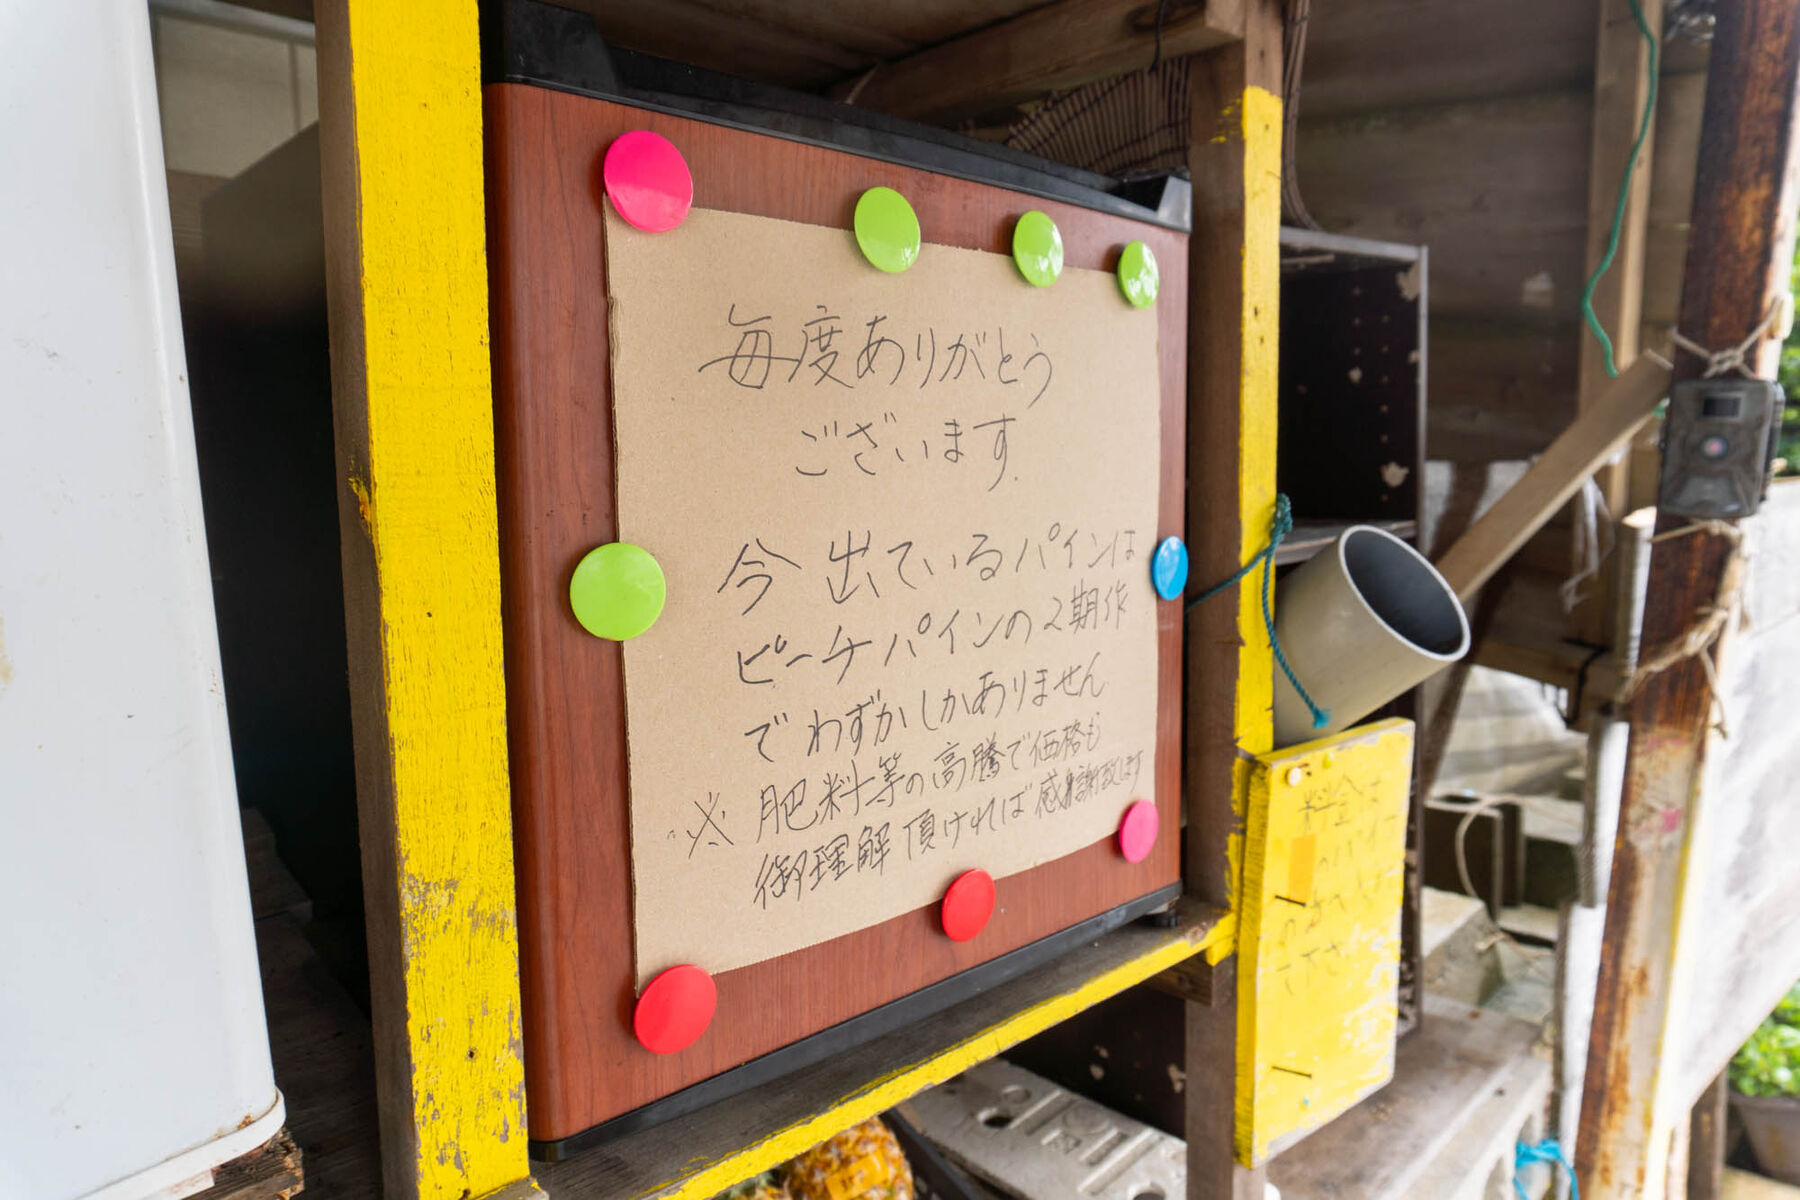 毎度ありがとう
ございます.
今出ているパインは
ピーチパインの2期作
でわずかしかありません
※肥料等の高騰で価格も
御理解頂ければ感謝致します
料金は
のパイプ
の中へ
下さい